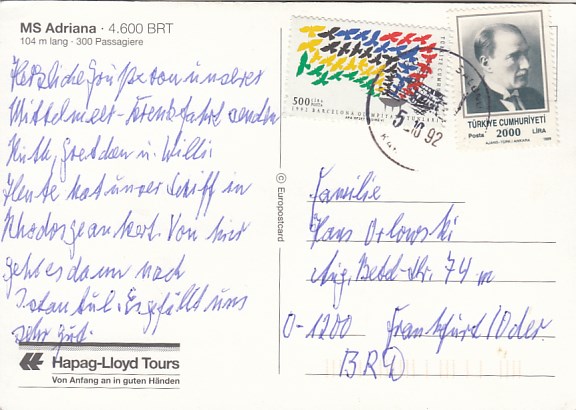 MS Adriana · 4.600 BRT
104 m lang · 300 Passagiere
Herzliche Grüße von unserer
Mittelmeer-Kreuzfahrt senden
Ruth, Gretchen u. Willi
Heute hat unser Schiff in
Rhodos geankert. Von hier
geht es dann nach
Istanbul. Es gefällt uns
sehr gut.
Hapag-Lloyd Tours
Von Anfang an in guten Händen
© Europostcard
500 LİRA
1992 BARCELONA
5-10 92
TÜRKİYE CUMHURİYETİ
Posta 2000 LİRA
AJANS-TÜRK/ANKARA
Familie
Hans Orlowski
Aug. Bebel-Str. 74 m
O-1200 Frankfurt/Oder
BRD